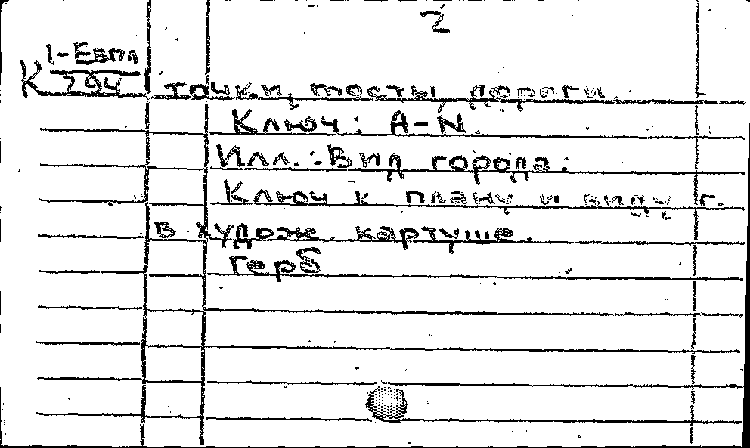 2
К 1-Евпл
794
точки, мосты, дороги.
Ключ: A-N.
Илл.: Вид города.
Ключ к плану и виду г.
в худож. картуше.
Герб